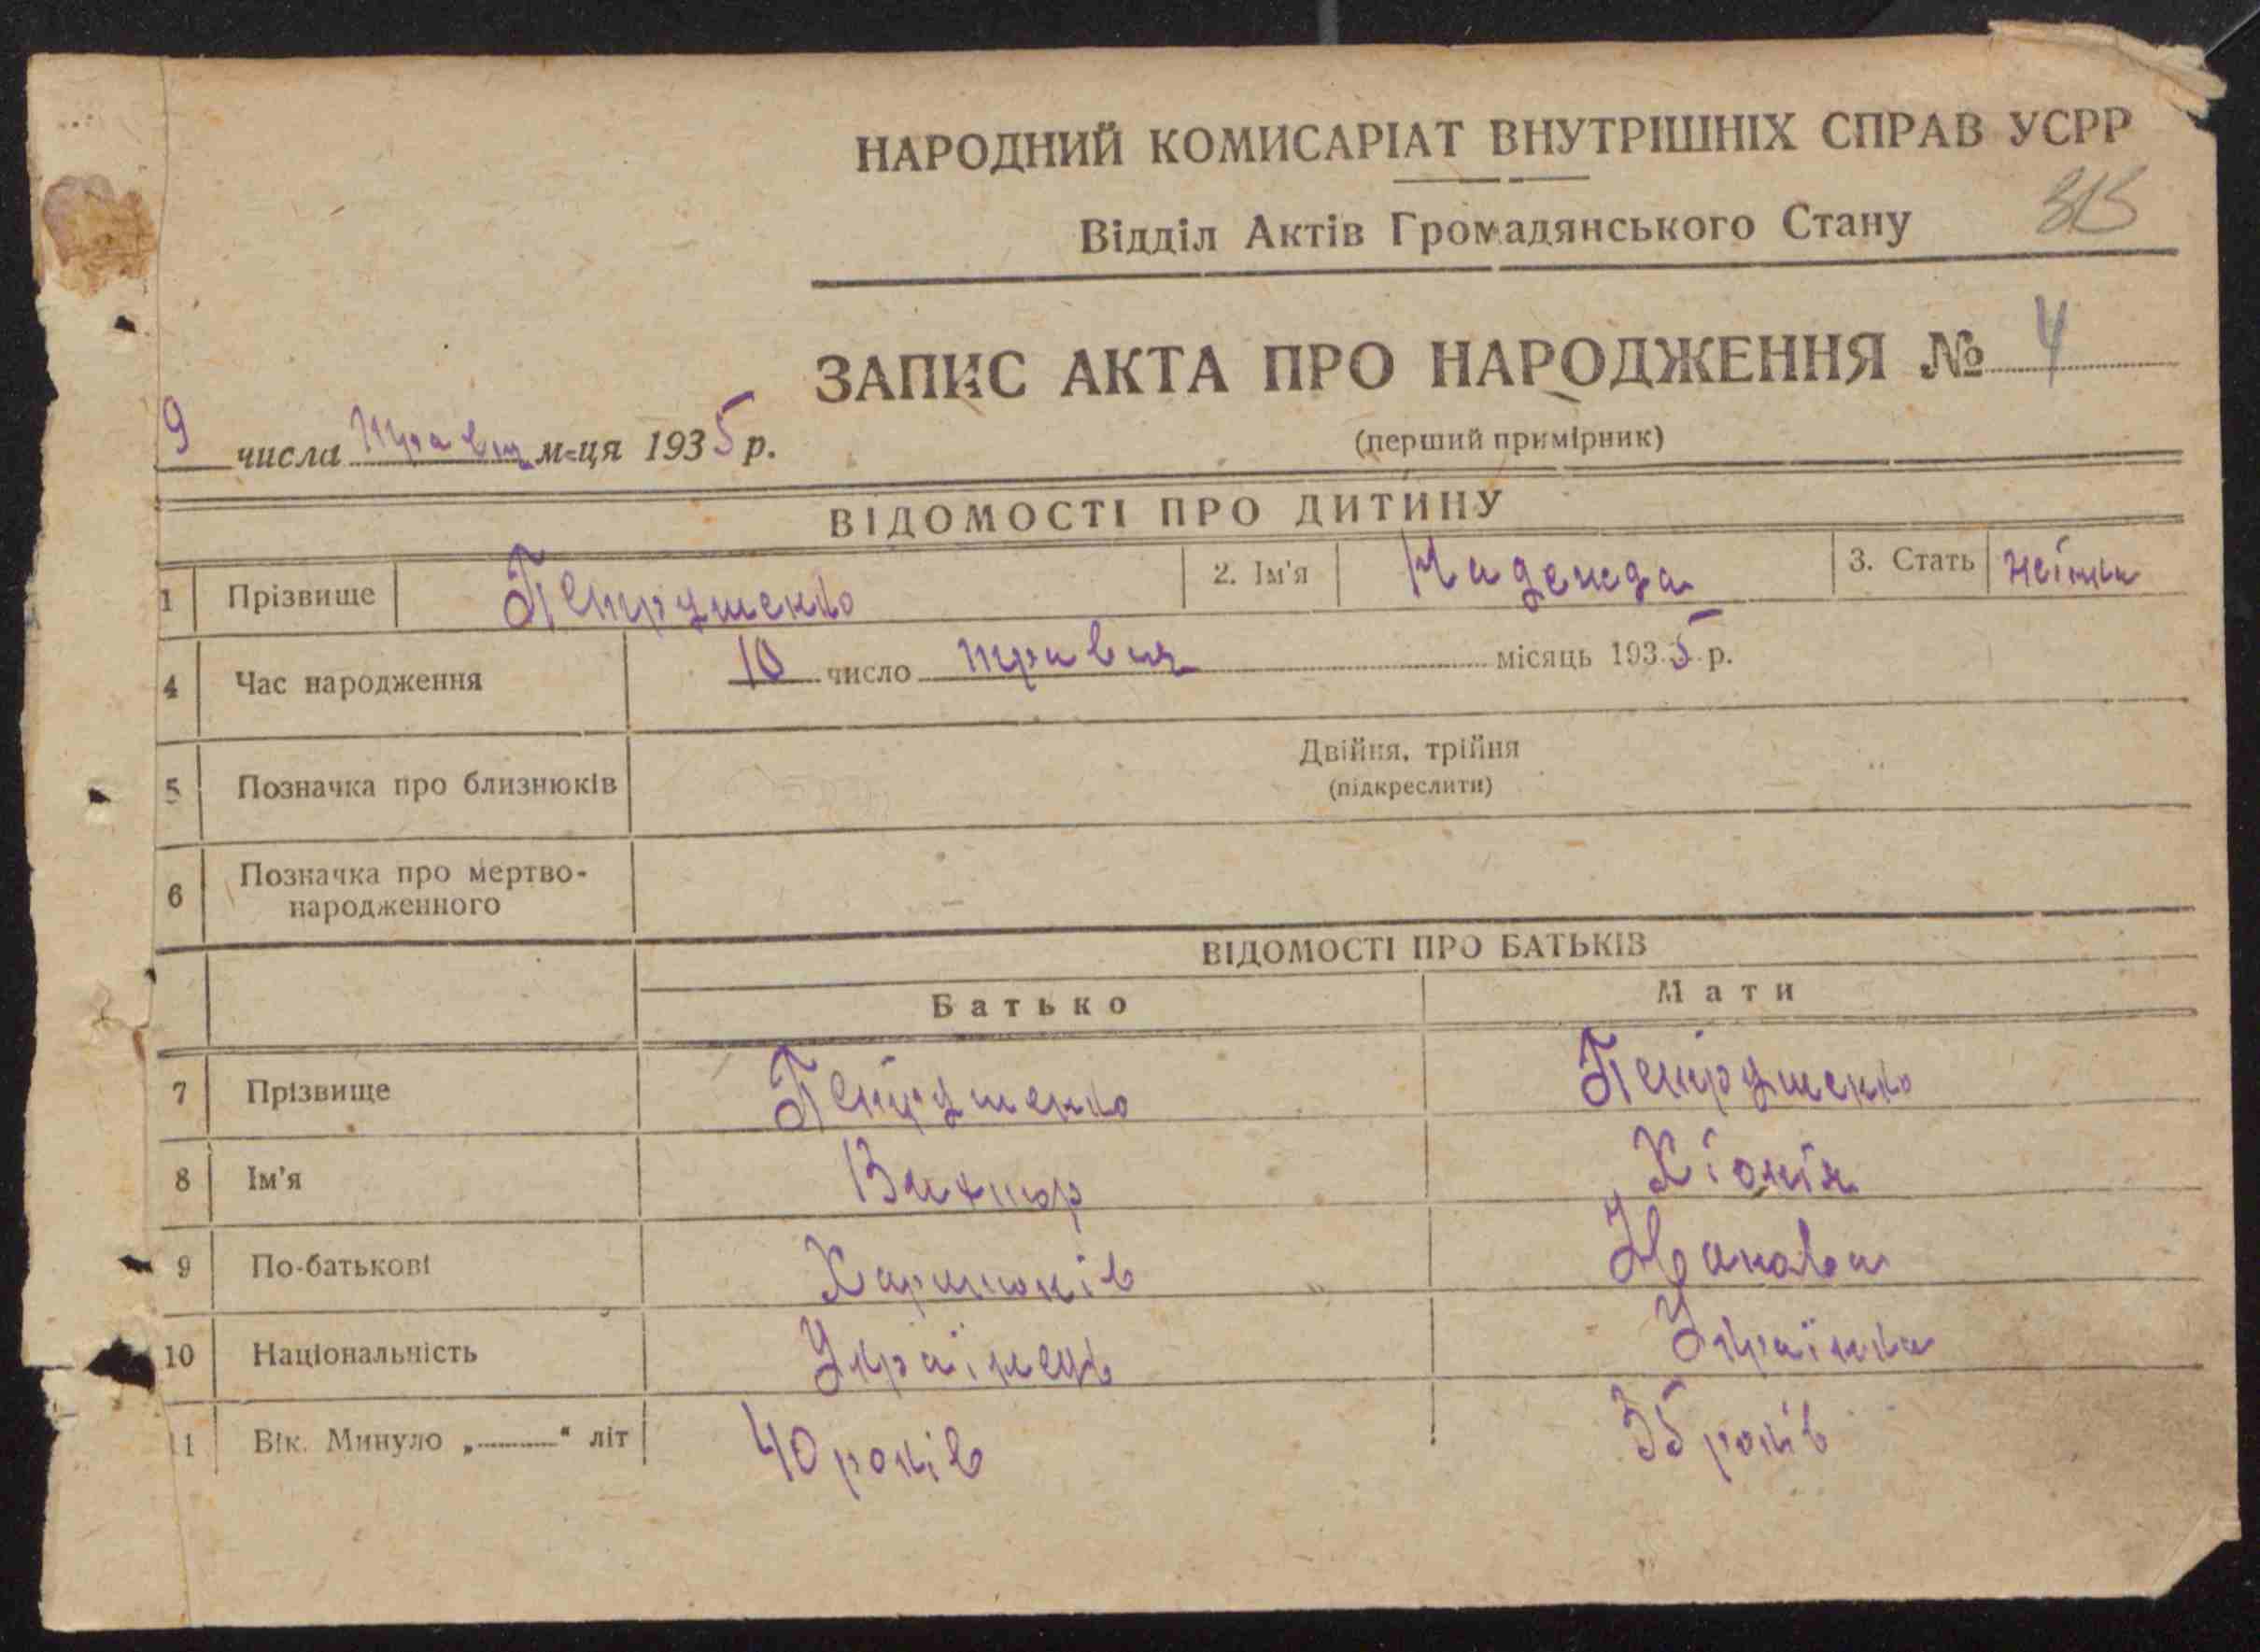 НАРОДНИЙ КОМИСАРІАТ ВНУТРІШНІХ СПРАВ УСРР
Відділ Актів Громадянського Стану
ЗАПИС АКТА ПРО НАРОДЖЕННЯ № 4
(перший примірник)
9 числа травня м-ця 1935 р.
ВІДОМОСТІ ПРО ДИТИНУ
1 Прізвище Петрушенко 2. Ім'я Надежда 3. Стать
4 Час народження 10 число травня місяць 1935 р.
5 Позначка про близнюків Двійня, трійня
(підкреслити)
6 Позначка про мертво-
народженного
ВІДОМОСТІ ПРО БАТЬКІВ
Батько Мати
7 Прізвище Петрушенко Петрушенко
8 Ім'я Виктор Хіонія
9 По-батькові Харитонів
10 Національність Українець Українка
11 Вік. Минуло „ “ літ 40 років 35 років